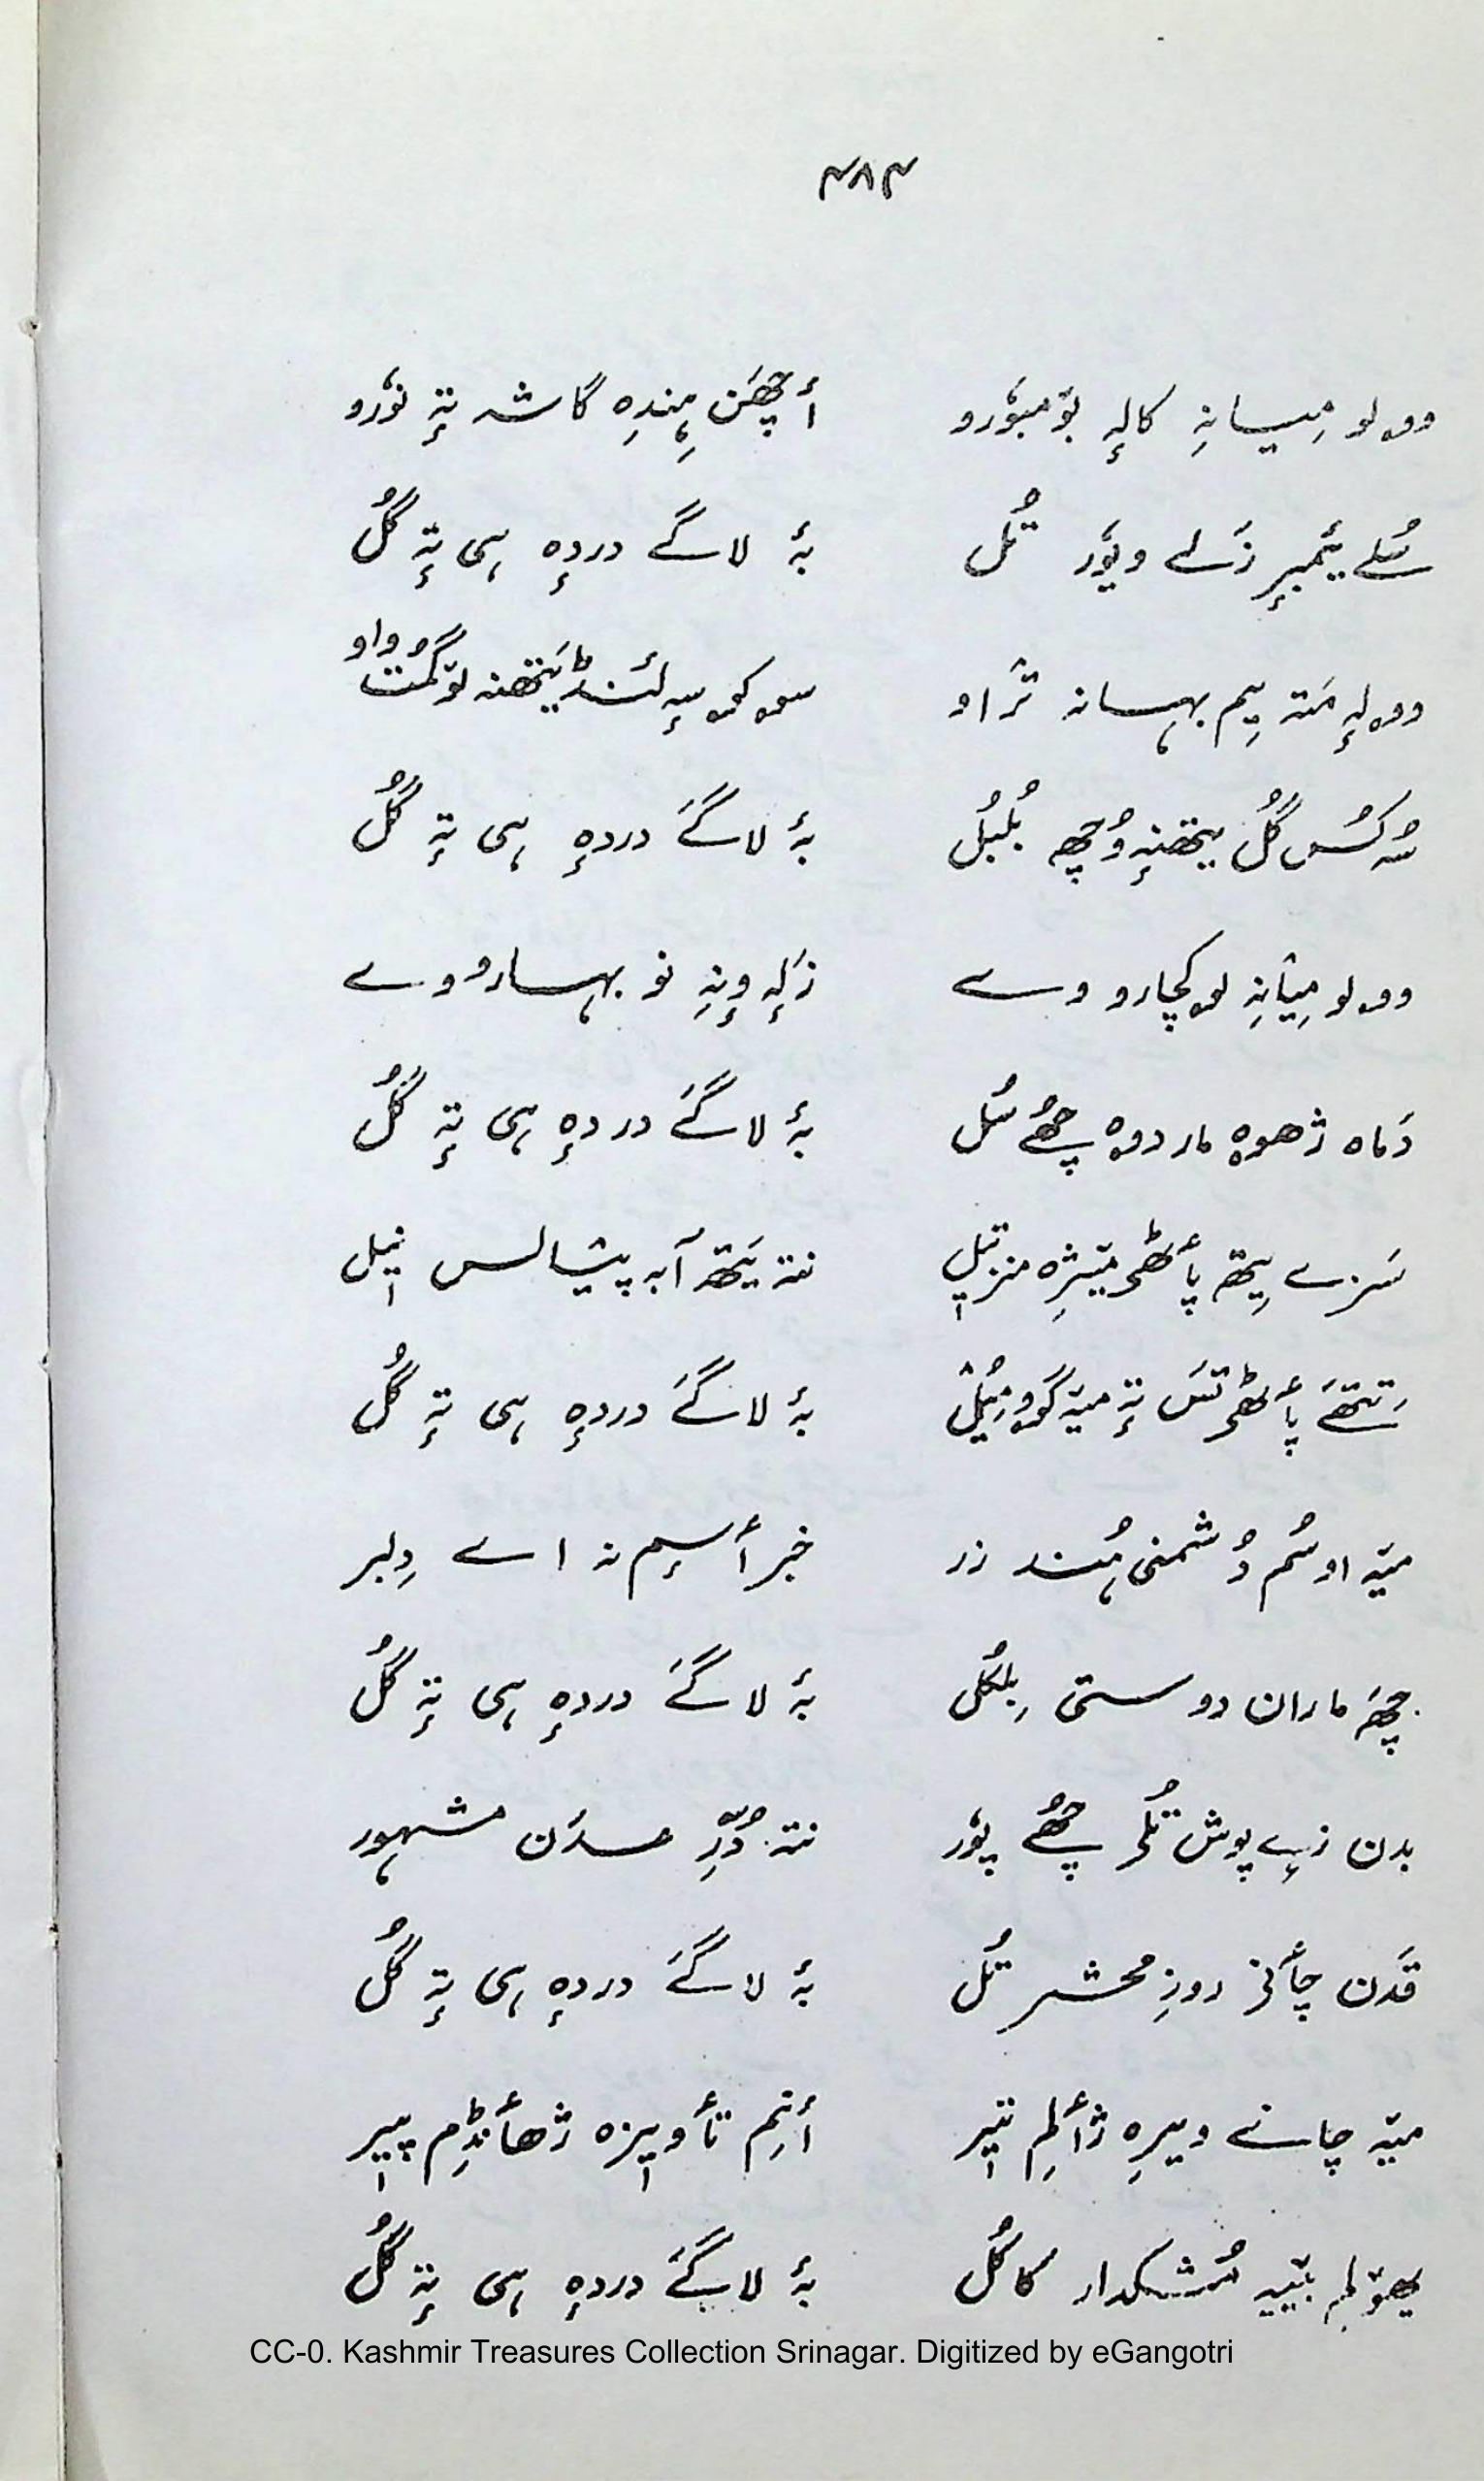 ۴۸۴
وولو میانہِ کالہٕ بومبٔورو أچھَن ہِندِہ گاشہ تہٕ نوٗرو
سُلے یٔمبرٕ زَلے ویوٗر تُل بۂ لاگے دردہٕ ہی تہٕ گُل
وولہٕ مَتہ یِم بہانہ ترٛاو سوکوسہٕ لٔنڈ یَتھنہ لوٚگمُت واو
سُہ کُس گُل یتھنہٕ وُچھ بُلبُل بۂ لاگےَ دردہٕ ہی تہٕ گُل
وولو مِیٛانہِ لوکچارو وے زَلہٕ وٕنہِ نو بہارو وے
دَماہ ژھوہ مار دوہ چھُے سُل بۂ لاگےَ دردہٕ ہی تہٕ گُل
سَرٛے یِتھ پأٹھۍ میٚژِہ منز تیٖل نتہ یَتھ آبہ پیٛالس نیٖل
تِتھَے پأٹھۍ تَس تہٕ میٚہ گوو مُیُل بۂ لاگےَ دردہٕ ہی تہٕ گُل
میٚہ اوسُم دُشمنی ہُند زر خبر أسٕم نہ اے دِلبر
چھَ ماران دوستی بِلکُل بۂ لاگےَ دردہٕ ہی تہٕ گُل
بدن زٕے پوش تُلۍ چھُے پوٗر نتہ دُرِّ عدَن مشہور
قَدَن چأنۍ روزِ محشر تُل بۂ لاگےَ دردہٕ ہی تہٕ گُل
میٚہ چانے ویرِہ ژألِم تیٖر أنِم تأویٖزہ ژھأنڈِم پیٖر
یوٚلم بیٚیہ مُشکدار کاکُل بۂ لاگےَ دردہٕ ہی تہٕ گُل
CC-0. Kashmir Treasures Collection Srinagar. Digitized by eGangotri